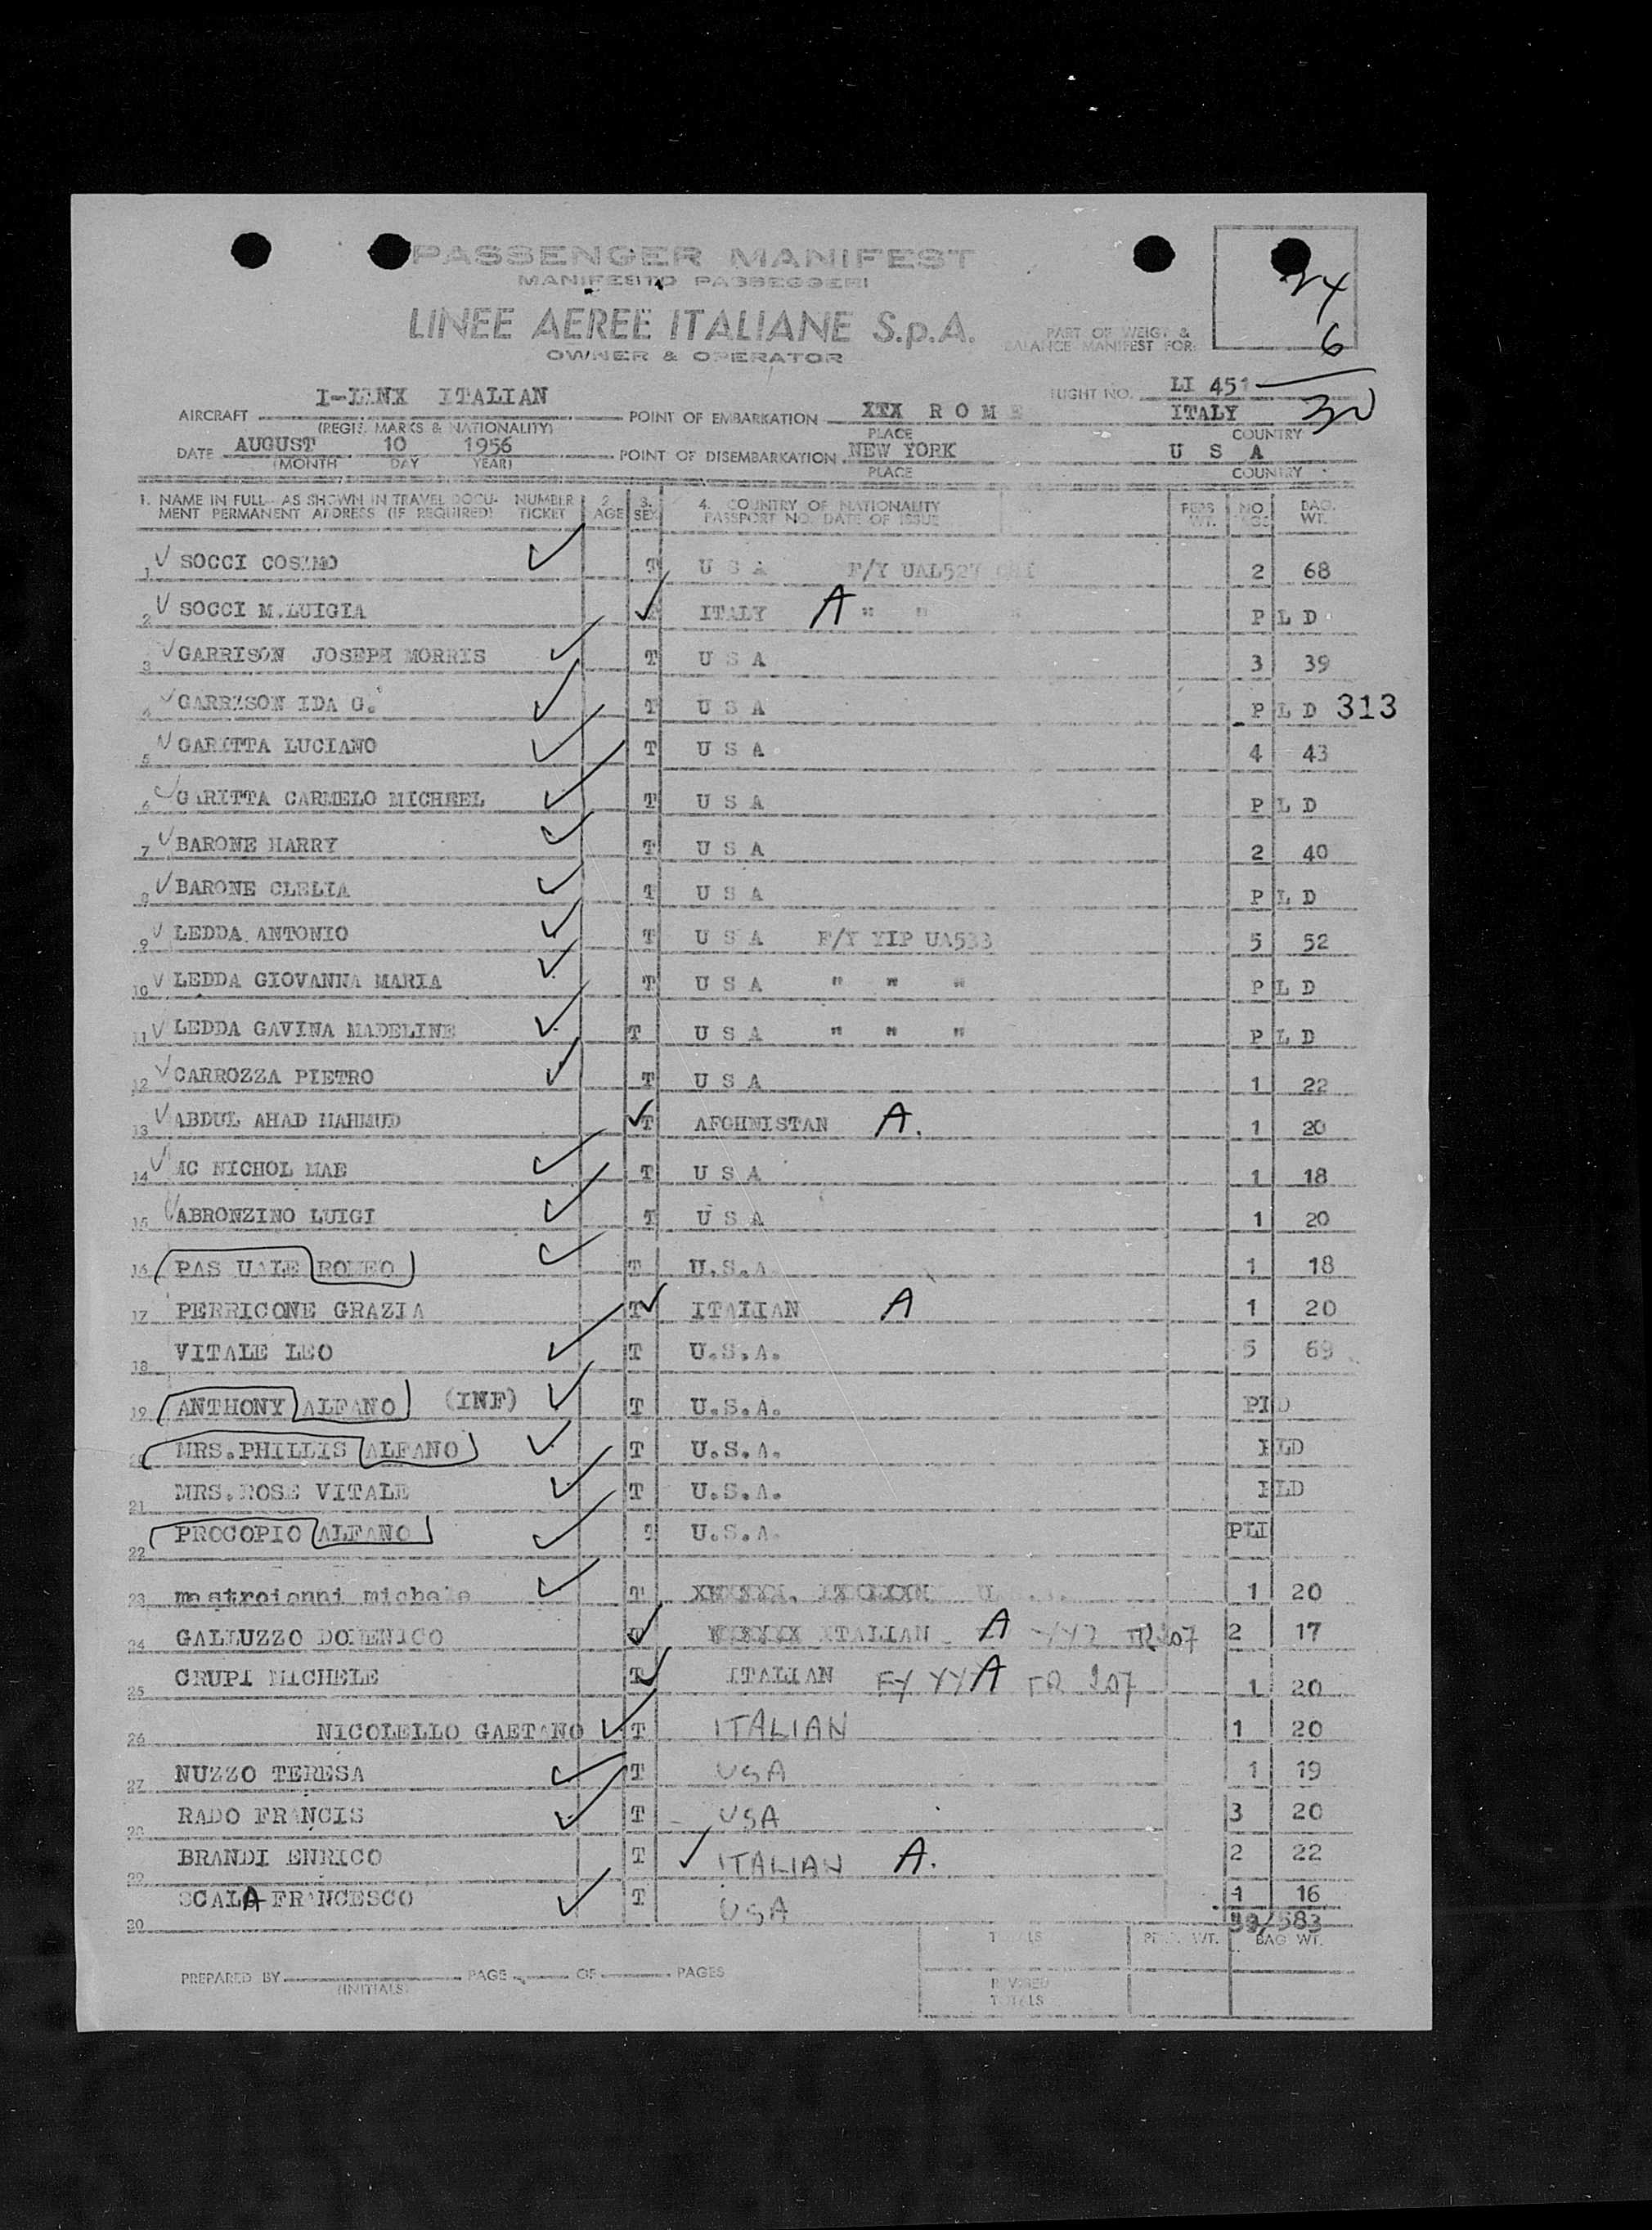 PASSENGER MANIFEST
MANIFESTO PASSEGGERI
LINEE AEREE ITALIANE S.p.A.
OWNER & OPERATOR
PART OF WEIGT &
BALANCE MANIFEST FOR:
24
6
30
AIRCRAFT I-LENX ITALIAN
(REGIS. MARKS & NATIONALITY)
POINT OF EMBARKATION XXX ROME ITALY
PLACE COUNTRY
FLIGHT NO. LI 451
DATE AUGUST 10 1956
(MONTH DAY YEAR)
POINT OF DISEMBARKATION NEW YORK U S A
PLACE COUNTRY
1. NAME IN FULL AS SHOWN IN TRAVEL DOCU- NUMBER 2. 3. 4. COUNTRY OF NATIONALITY PERS NO. BAG.
MENT PERMANENT ADDRESS (IF REQUIRED) TICKET AGE SEX PASSPORT NO. DATE OF ISSUE WT. WT.
1 SOCCI COSIMO T U S A F/Y UAL527 2 68
2 SOCCI M.LUIGIA ITALY A " " " P L D
3 GARRISON JOSEPH MORRIS T U S A 3 39
4 GARRISON IDA G. T U S A P L D 313
5 GARITTA LUCIANO T U S A 4 43
6 GARITTA CARMELO MICHEEL T U S A P L D
7 BARONE HARRY T U S A 2 40
8 BARONE CLELIA T U S A P L D
9 LEDDA ANTONIO T U S A F/Y YIP UA533 5 52
10 LEDDA GIOVANNA MARIA T U S A " " " P L D
11 LEDDA GAVINA MADELINE T U S A " " " P L D
12 CARROZZA PIETRO T U S A 1 22
13 ABDUL AHAD MAHMUD T AFGHNISTAN A. 1 20
14 MC NICHOL MAE T U S A 1 18
15 ABRONZINO LUIGI T U S A 1 20
16 PAS UALE ROMEO T U.S.A. 1 18
17 PERRICONE GRAZIA T ITALIAN A 1 20
18 VITALE LEO T U.S.A. 5 69
19 ANTHONY ALFANO (INF) T U.S.A. PLD
20 MRS.PHILLIS ALFANO T U.S.A. PLD
21 MRS.ROSE VITALE T U.S.A. PLD
22 PROCOPIO ALFANO T U.S.A. PLD
23 mastroianni michele T 1 20
24 GALLUZZO DOMENICO ITALIAN A YYZ TR207 2 17
25 CRUPI MICHELE T ITALIAN FY YYZ A TR 207 1 20
26 NICOLELLO GAETANO T ITALIAN 1 20
27 NUZZO TERESA T USA 1 19
28 RADO FRANCIS T USA 3 20
29 BRANDI ENRICO T ITALIAN A. 2 22
30 SCALA FRANCESCO T USA 1 16
39/583
TOTALS PERS. WT. BAG WT.
PREPARED BY PAGE OF PAGES
(INITIALS)
REVISED
TOTALS